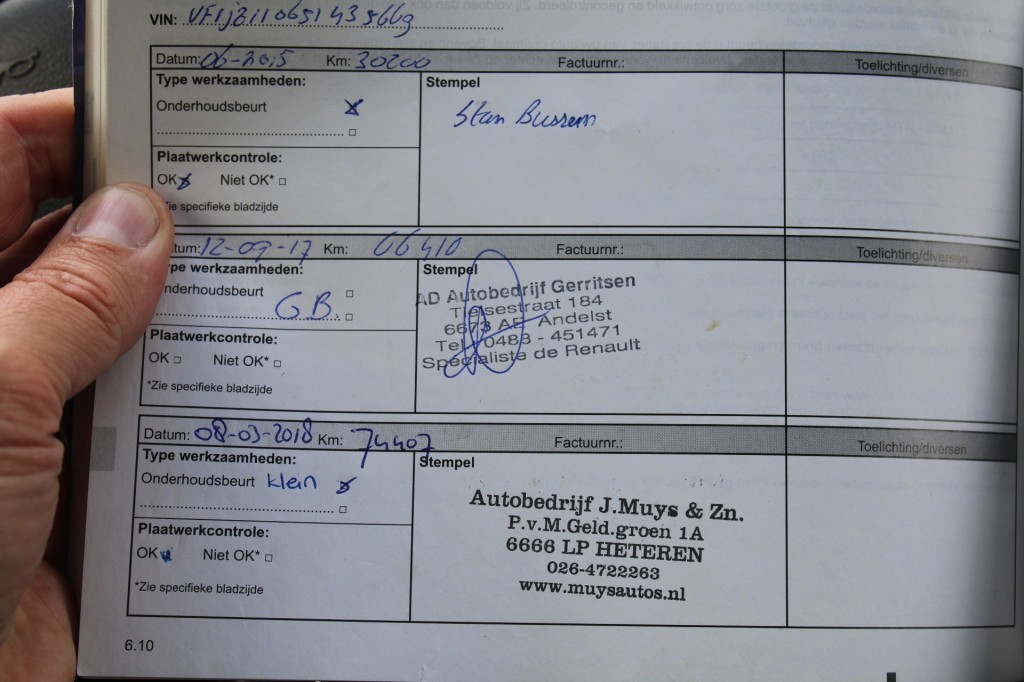 VIN: VF1jBi10651435669
Datum: 06-2015 Km: 30200 Factuurnr.: Toelichting/diversen
Type werkzaamheden: Stempel
Onderhoudsbeurt
Stern Bussum
Plaatwerkcontrole:
OK Niet OK*
Zie specifieke bladzijde
tum: 12-09-17 Km: 66410 Factuurnr.: Toelichting/diversen
ype werkzaamheden: Stempel
nderhoudsbeurt
G.B.
AD Autobedrijf Gerritsen
Tielsestraat 184
6673 AE Andelst
Tel. 0483 - 451471
Specialiste de Renault
Plaatwerkcontrole:
OK Niet OK*
*Zie specifieke bladzijde
Datum: 08-03-2018 Km: 74407 Factuurnr.: Toelichting/diversen
Type werkzaamheden: Stempel
Onderhoudsbeurt klein
Autobedrijf J.Muys & Zn.
P.v.M.Geld.groen 1A
6666 LP HETEREN
026-4722263
www.muysautos.nl
Plaatwerkcontrole:
OK Niet OK*
*Zie specifieke bladzijde
6.10